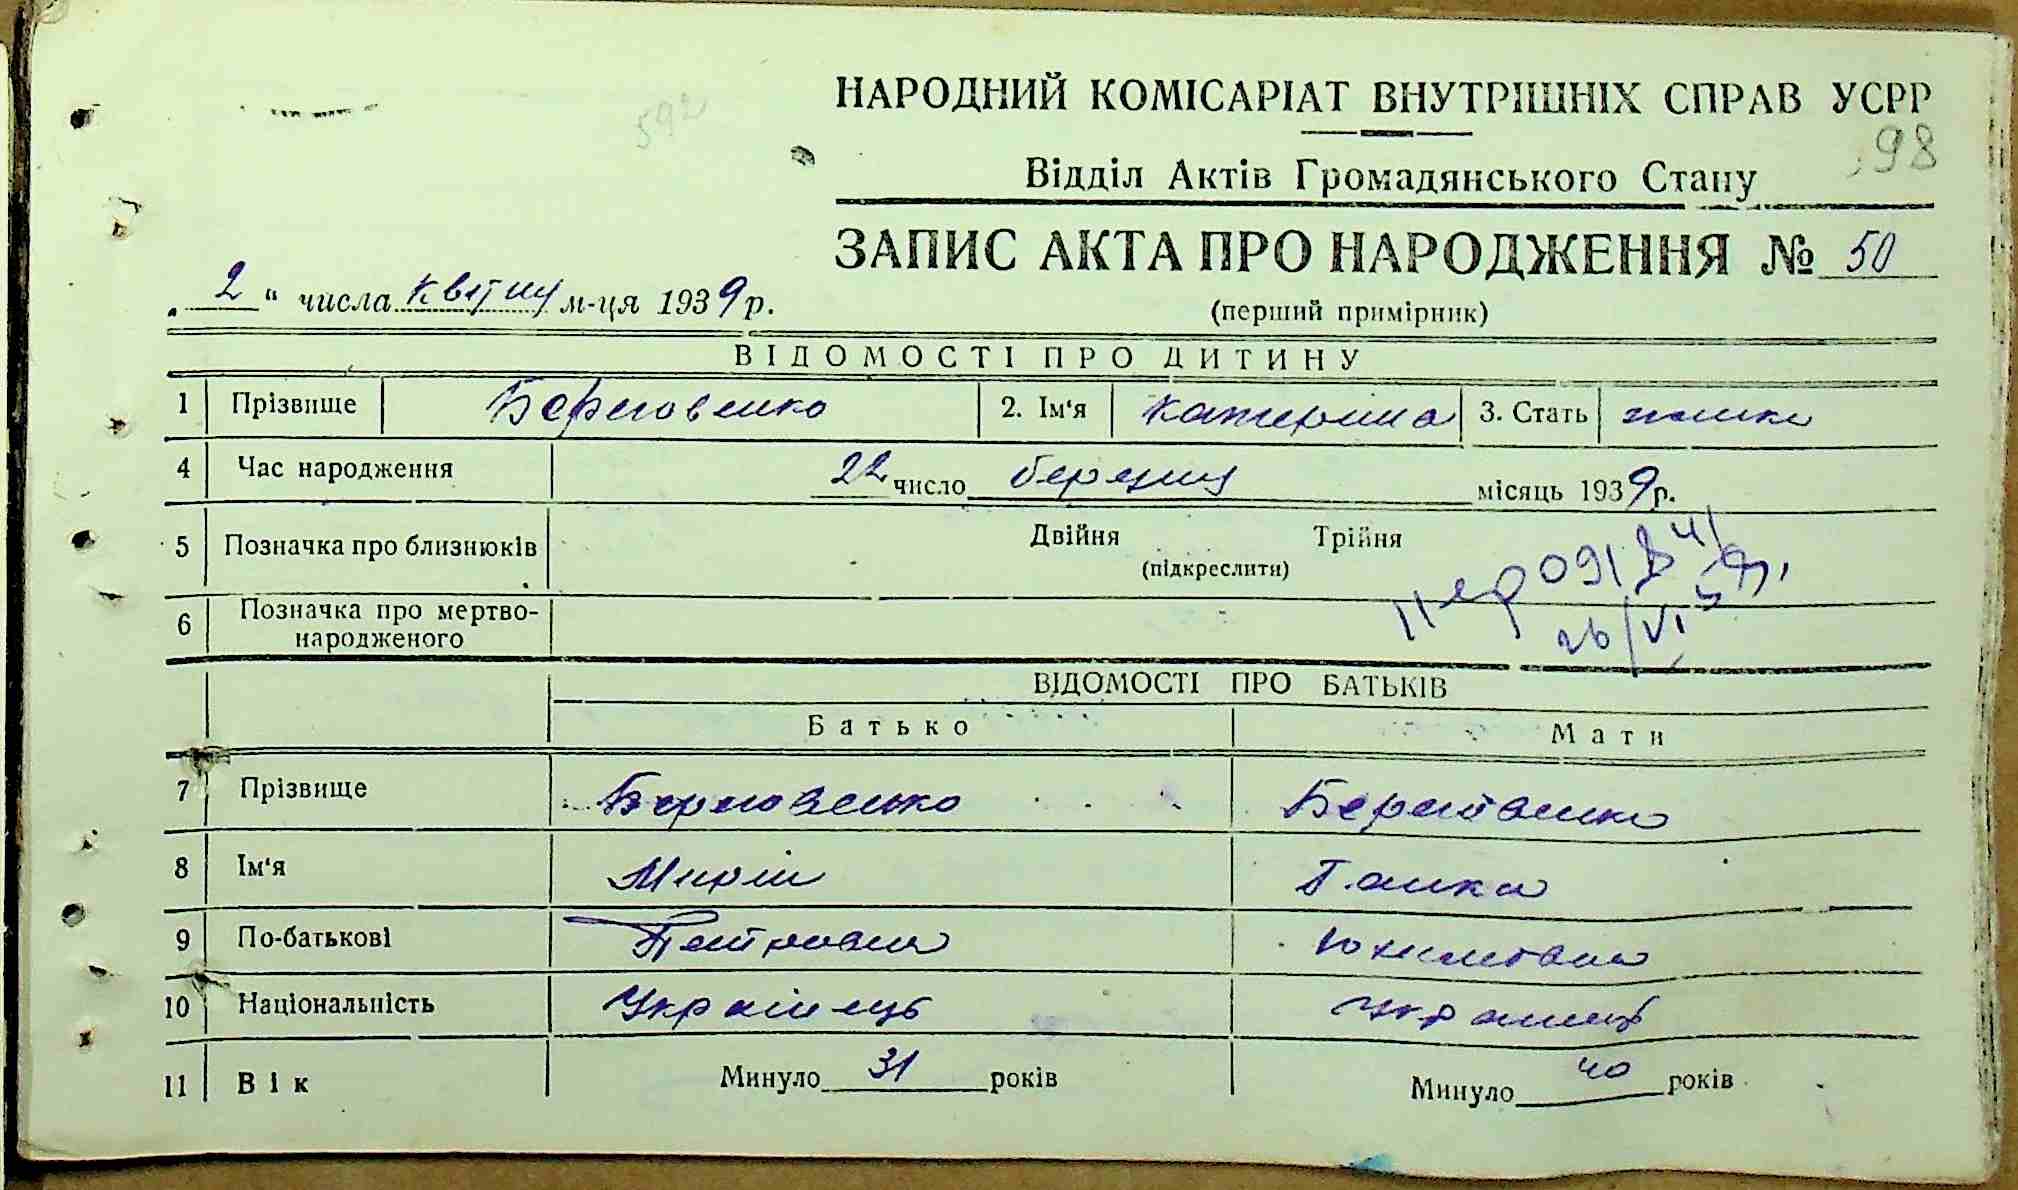 592
НАРОДНИЙ КОМІСАРІАТ ВНУТРІШНІХ СПРАВ УСРР
98
Відділ Актів Громадянського Стану
ЗАПИС АКТА ПРО НАРОДЖЕННЯ № 50
(перший примірник)
„ 2 “ числа квітня м-ця 1939 р.
ВІДОМОСТІ ПРО ДИТИНУ
1 Прізвище Береговенко 2. Ім'я Катерина 3. Стать жіноч
4 Час народження 22 число березня місяць 1939 р.
5 Позначка про близнюків Двійня Трійня
(підкреслити)
6 Позначка про мертво-
народженого
26/VI
ВІДОМОСТІ ПРО БАТЬКІВ
Батько Мати
7 Прізвище Береговенко Береговенко
8 Ім'я Ганна
9 По-батькові Петрович Юхимовна
10 Національність Українець Українець
11 Вік Минуло 31 років Минуло 40 років